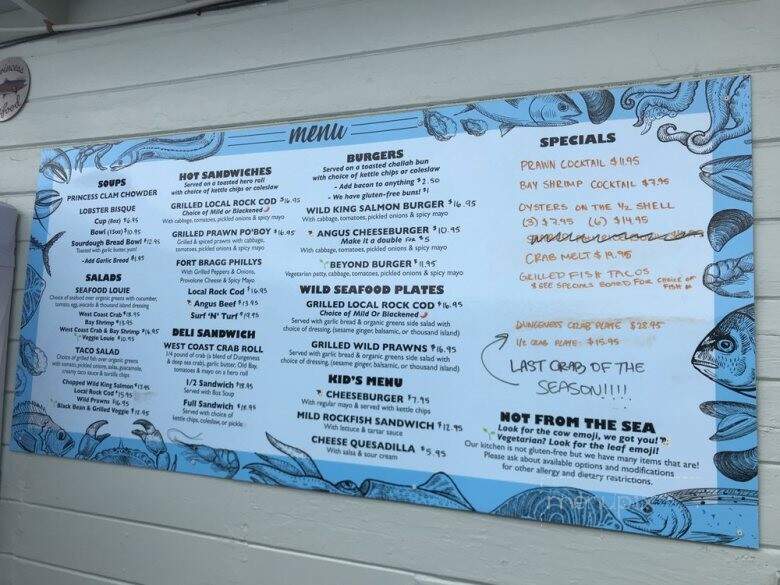 menu
SOUPS
PRINCESS CLAM CHOWDER
LOBSTER BISQUE
Cup (8oz) $6.95
Bowl (15oz) $10.95
Sourdough Bread Bowl $12.95
Toasted with garlic butter, yum!
- Add Garlic Bread $1.95
SALADS
SEAFOOD LOUIE
Choice of seafood over organic greens with cucumber,
tomato, egg, avocado & thousand island dressing
West Coast Crab $18.95
Bay Shrimp $13.95
West Coast Crab & Bay Shrimp $16.95
Veggie Louie $10.95
TACO SALAD
Choice of grilled fish over organic greens
with tomato, pickled onions, salsa, guacamole,
creamy taco sauce & tortilla chips
Chopped Wild King Salmon $17.95
Local Rock Cod $15.95
Wild Prawns $16.95
Black Bean & Grilled Veggie $12.95
HOT SANDWICHES
Served on a toasted hero roll
with choice of kettle chips or coleslaw
GRILLED LOCAL ROCK COD $16.95
Choice of Mild or Blackened
With cabbage, tomatoes, pickled onions & spicy mayo
GRILLED PRAWN PO'BOY $16.95
Grilled & spiced prawns with cabbage,
tomatoes, pickled onions & spicy mayo
FORT BRAGG PHILLYS
With Grilled Peppers & Onions,
Provolone Cheese & Spicy Mayo
Local Rock Cod $16.95
Angus Beef $13.95
Surf 'N' Turf $19.95
DELI SANDWICH
WEST COAST CRAB ROLL
1/4 pound of crab (a blend of Dungeness
& deep sea crab), garlic butter, Old Bay,
tomatoes & mayo on a hero roll
1/2 Sandwich $18.95
Served with 8oz Soup
Full Sandwich $18.95
Served with choice of
kettle chips, coleslaw, or pickle
BURGERS
Served on a toasted challah bun
with choice of kettle chips or coleslaw
- Add bacon to anything $2.50
- We have gluten-free buns! $1
WILD KING SALMON BURGER $16.95
With cabbage, tomatoes, pickled onions & spicy mayo
ANGUS CHEESEBURGER $10.95
Make it a double FOR $5
With cabbage, tomatoes, pickled onions & spicy mayo
BEYOND BURGER $11.95
Vegetarian patty, cabbage, tomatoes, pickled onions & spicy mayo
WILD SEAFOOD PLATES
GRILLED LOCAL ROCK COD $16.95
Choice of Mild Or Blackened
Served with garlic bread & organic greens side salad with
choice of dressing, (sesame ginger, balsamic, or thousand island)
GRILLED WILD PRAWNS $16.95
Served with garlic bread & organic greens side salad with
choice of dressing, (sesame ginger, balsamic, or thousand island)
KID'S MENU
CHEESEBURGER $7.95
With regular mayo & served with kettle chips
MILD ROCKFISH SANDWICH $12.95
With lettuce & tartar sauce
CHEESE QUESADILLA $5.95
With salsa & sour cream
SPECIALS
PRAWN COCKTAIL $11.95
BAY SHRIMP COCKTAIL $7.95
OYSTERS ON THE 1/2 SHELL
(3) $7.95 (6) $14.95
CRAB MELT $19.95
GRILLED FISH TACOS
* SEE SPECIALS BOARD FOR CHOICE OF
FISH
DUNGENESS CRAB PLATE $28.95
1/2 CRAB PLATE $15.95
LAST CRAB OF THE
SEASON!!!!
NOT FROM THE SEA
Look for the cow emoji, we got you!
Vegetarian? Look for the leaf emoji!
Our kitchen is not gluten-free but we have many items that are!
Please ask about available options and modifications
for other allergy and dietary restrictions.